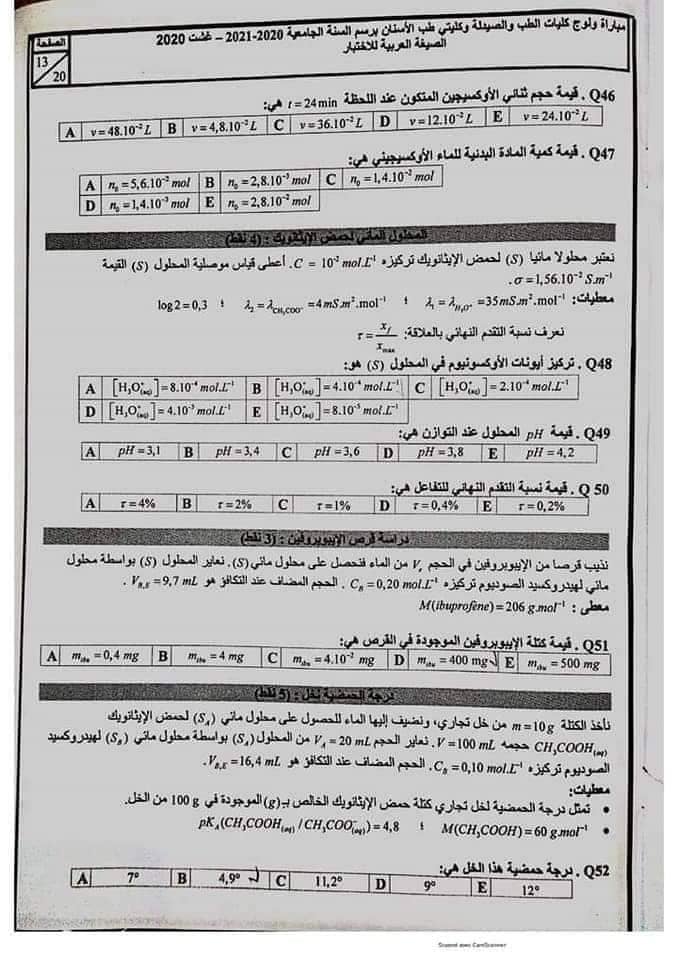 مباراة ولوج كليات الطب والصيدلة وكليتي طب الأسنان برسم السنة الجامعية 2020-2021 – غشت 2020
الصيغة العربية للاختبار
الصفحة
13
20
Q46 . قيمة حجم ثنائي الأوكسيجين المتكون عند اللحظة t = 24 min هي:
A v = 48.10⁻² L B v = 4,8.10⁻² L C v = 36.10⁻² L D v = 12.10⁻² L E v = 24.10⁻² L
Q47 . قيمة كمية المادة البدئية للماء الأوكسيجيني هي:
A n₀ = 5,6.10⁻² mol B n₀ = 2,8.10⁻³ mol C n₀ = 1,4.10⁻² mol
D n₀ = 1,4.10⁻³ mol E n₀ = 2,8.10⁻² mol
المحلول المائي لحمض الإيثانويك : (4 نقط)
نعتبر محلولا مائيا (S) لحمض الإيثانويك تركيزه C = 10⁻² mol.L⁻¹. أعطى قياس موصلية المحلول (S) القيمة
σ = 1,56.10⁻² S.m⁻¹ .
معطيات: λ₁ = λ_H₃O⁺ = 35 mS.m².mol⁻¹ ؛ λ₂ = λ_CH₃COO⁻ = 4 mS.m².mol⁻¹ ؛ log 2 = 0,3
نعرف نسبة التقدم النهائي بالعلاقة: τ = x_f / x_max
Q48 . تركيز أيونات الأوكسونيوم في المحلول (S) هو:
A [H₃O⁺(aq)] = 8.10⁻⁴ mol.L⁻¹ B [H₃O⁺(aq)] = 4.10⁻⁴ mol.L⁻¹ C [H₃O⁺(aq)] = 2.10⁻⁴ mol.L⁻¹
D [H₃O⁺(aq)] = 4.10⁻⁵ mol.L⁻¹ E [H₃O⁺(aq)] = 8.10⁻⁵ mol.L⁻¹
Q49 . قيمة pH المحلول عند التوازن هي:
A pH = 3,1 B pH = 3,4 C pH = 3,6 D pH = 3,8 E pH = 4,2
Q 50 . قيمة نسبة التقدم النهائي للتفاعل هي:
A τ = 4% B τ = 2% C τ = 1% D τ = 0,4% E τ = 0,2%
دراسة قرص الإيبوبروفين : (3 نقط)
نذيب قرصا من الإيبوبروفين في الحجم من الماء فنحصل على محلول مائي (S). نعاير المحلول (S) بواسطة محلول
مائي لهيدروكسيد الصوديوم تركيزه C_B = 0,20 mol.L⁻¹ . الحجم المضاف عند التكافؤ هو V_B,E = 9,7 mL .
معطى : M(ibuprofène) = 206 g.mol⁻¹
Q51 . قيمة كتلة الإيبوبروفين الموجودة في القرص هي:
A m_ibu = 0,4 mg B m_ibu = 4 mg C m_ibu = 4.10⁻² mg D m_ibu = 400 mg E m_ibu = 500 mg
درجة الحمضية لخل : (5 نقط)
نأخذ الكتلة m = 10 g من خل تجاري، ونضيف إليها الماء للحصول على محلول مائي (S_A) لحمض الإيثانويك
CH₃COOH(aq) حجمه V = 100 mL. نعاير الحجم V_A = 20 mL من المحلول (S_A) بواسطة محلول مائي (S_B) لهيدروكسيد
الصوديوم تركيزه C_B = 0,10 mol.L⁻¹. الحجم المضاف عند التكافؤ هو V_B,E = 16,4 mL.
معطيات:
• تمثل درجة الحمضية لخل تجاري كتلة حمض الإيثانويك الخالص بـ (g) الموجودة في 100 g من الخل.
• M(CH₃COOH) = 60 g.mol⁻¹ ؛ pK_A(CH₃COOH(aq) / CH₃COO⁻(aq)) = 4,8
Q52 . درجة حمضية هذا الخل هي:
A 7° B 4,9° C 11,2° D 9° E 12°
Scanned avec CamScanner